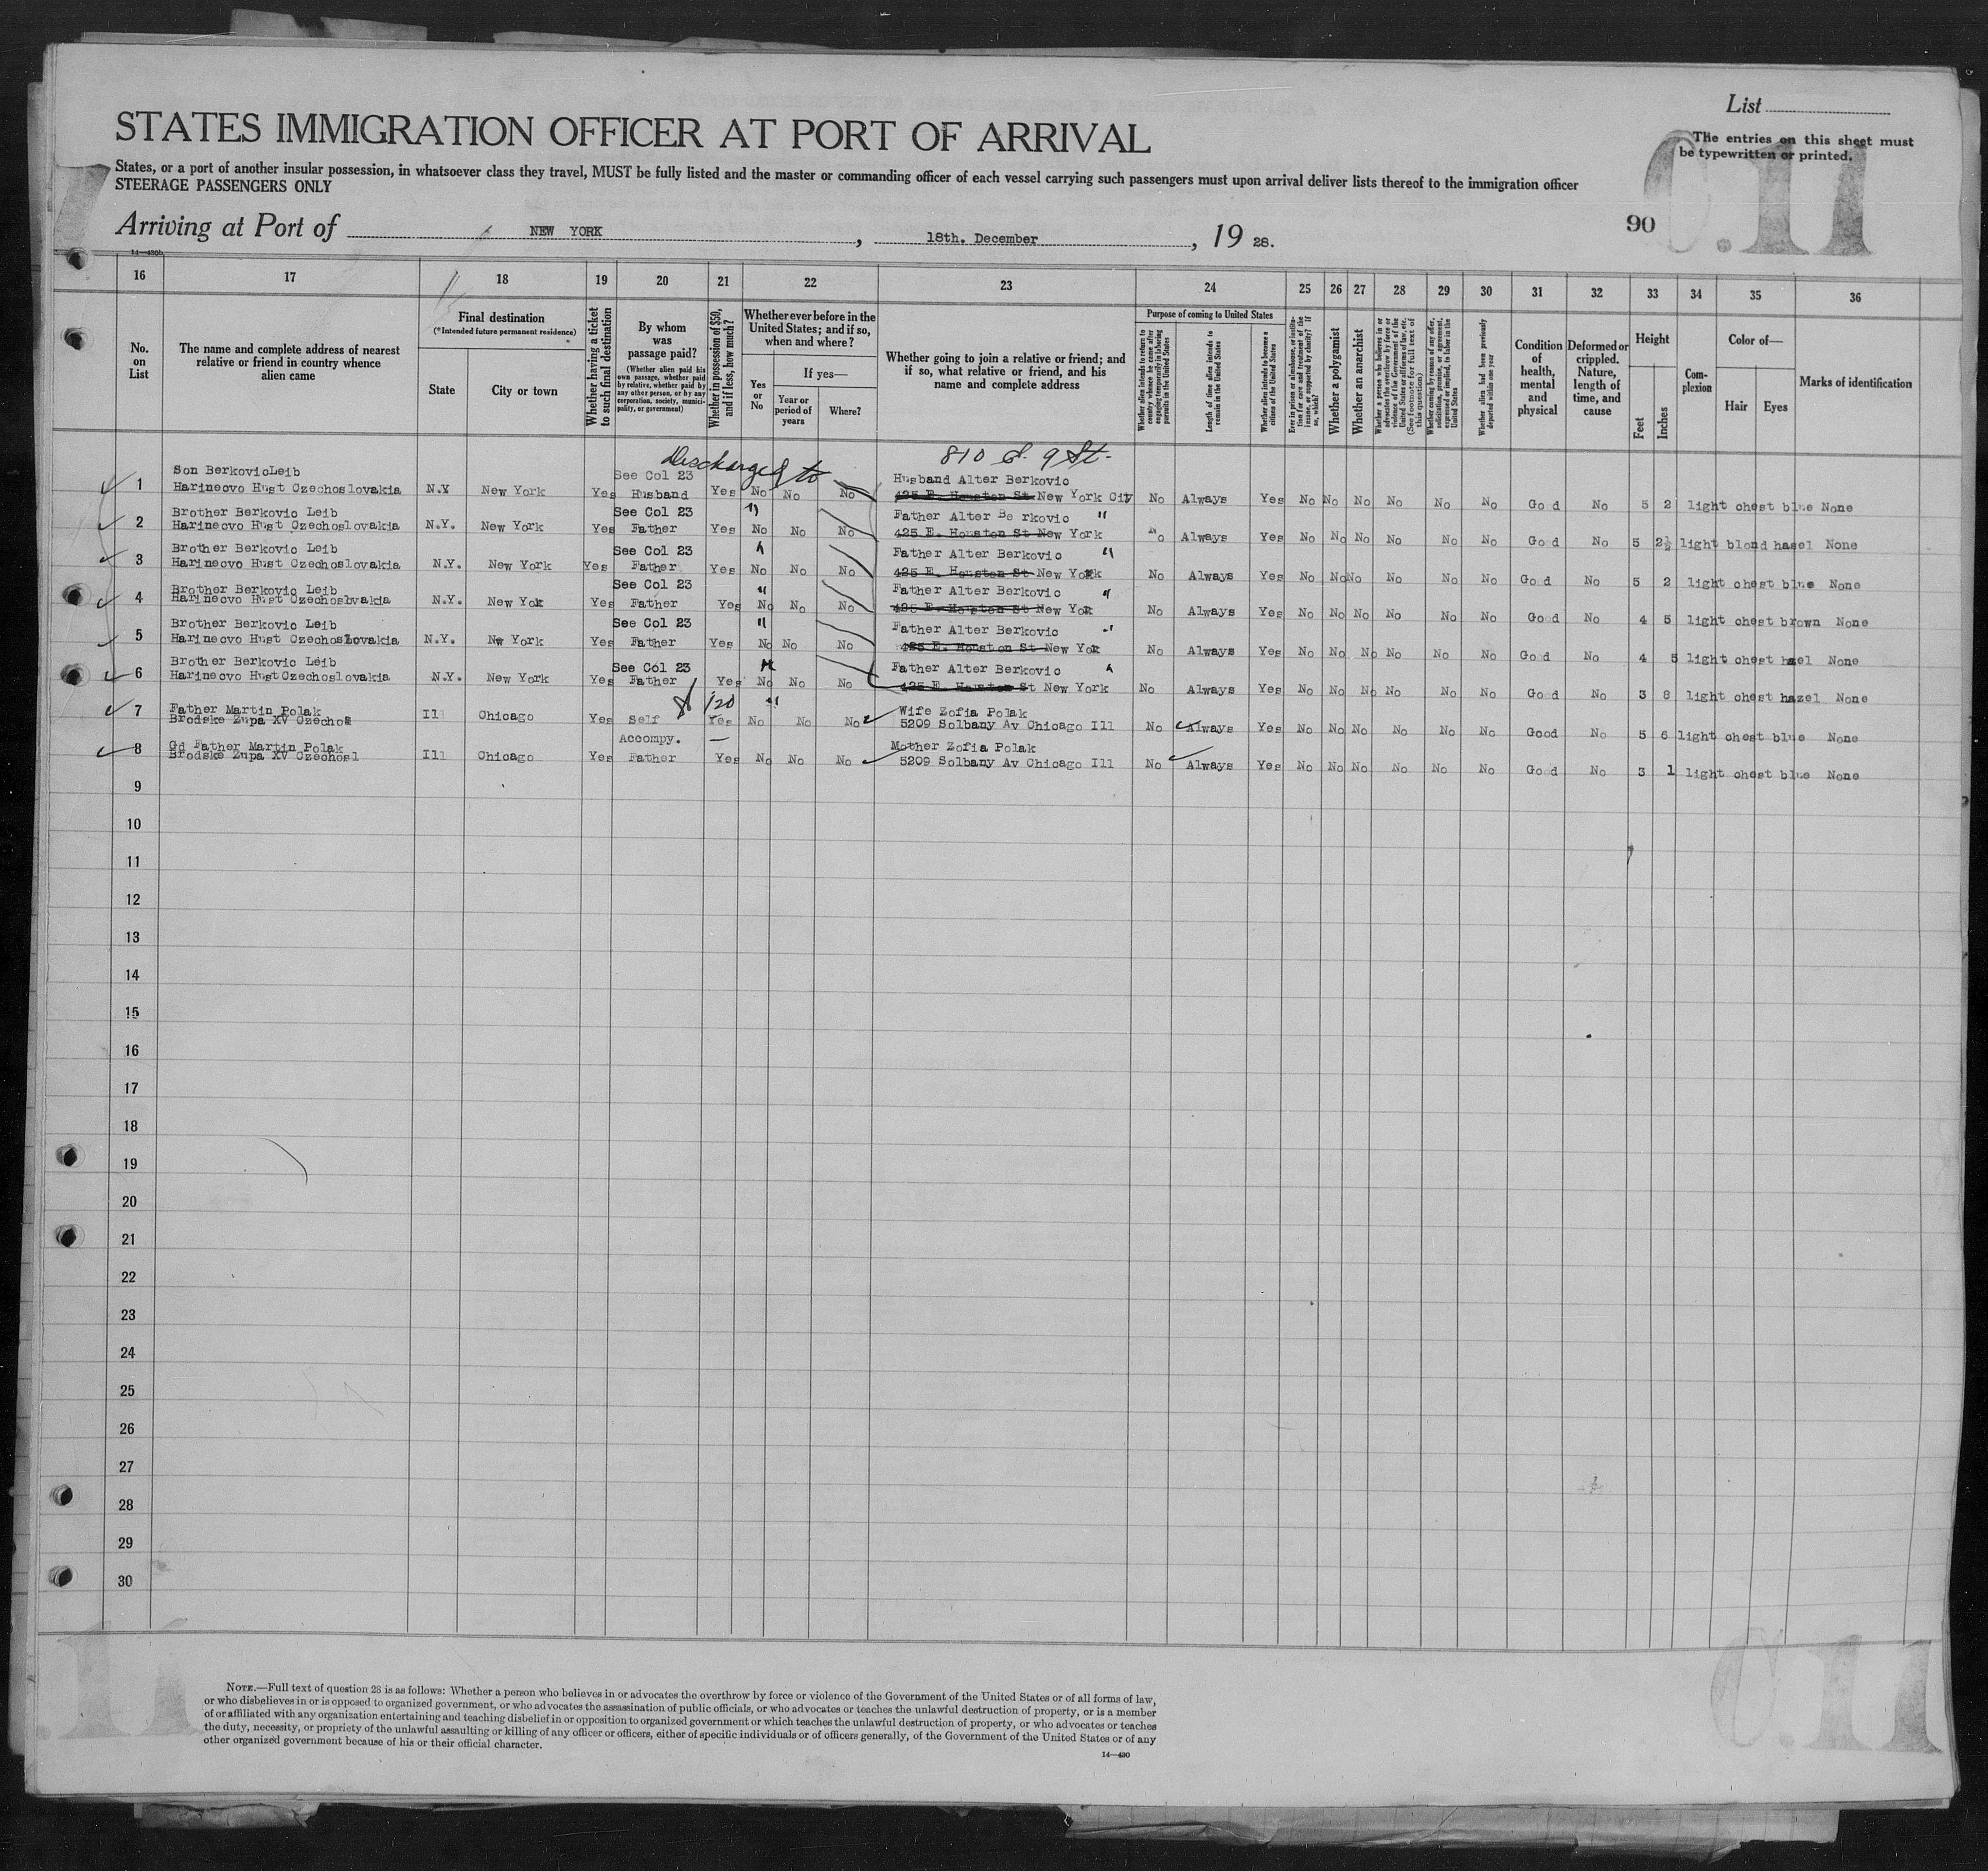 List
STATES IMMIGRATION OFFICER AT PORT OF ARRIVAL
The entries on this sheet must
be typewritten or printed.
C.11
States, or a port of another insular possession, in whatsoever class they travel, MUST be fully listed and the master or commanding officer of each vessel carrying such passengers must upon arrival deliver lists thereof to the immigration officer
STEERAGE PASSENGERS ONLY
Arriving at Port of NEW YORK, 18th, December, 19 28.
90
16 17 18 19 20 21 22 23 24 25 26 27 28 29 30 31 32 33 34 35 36
No. on List
The name and complete address of nearest relative or friend in country whence alien came
Final destination
(*Intended future permanent residence)
State
City or town
Whether having a ticket to such final destination
By whom was passage paid?
(Whether alien paid his own passage, whether paid by relative, whether paid by any other person, or by any corporation, society, municipality, or government)
Whether in possession of $50, and if less, how much?
Whether ever before in the United States; and if so, when and where?
Yes or No
If yes—
Year or period of years
Where?
Whether going to join a relative or friend; and if so, what relative or friend, and his name and complete address
Purpose of coming to United States
Whether alien intends to return to country whence he came after engaging temporarily in laboring pursuits in the United States
Length of time alien intends to remain in the United States
Whether alien intends to become a citizen of the United States
Ever in prison or almshouse, or institution for care and treatment of the insane, or supported by charity? If so, which?
Whether a polygamist
Whether an anarchist
Whether a person who believes in or advocates the overthrow by force or violence of the Government of the United States or all forms of law, etc. (See footnote for full text of this question)
Whether coming by reason of any offer, solicitation, promise, or agreement, expressed or implied, to labor in the United States
Whether alien had been previously deported within one year
Condition of health, mental and physical
Deformed or crippled. Nature, length of time, and cause
Height
Feet
Inches
Complexion
Color of—
Hair
Eyes
Marks of identification
Discharged to 810 E. 9 St.
Son BerkovicLeib See Col 23 Husband Alter Berkovic
1 Harineovo Hust Czechoslovakia N.Y New York Yes Husband Yes No No No 425 E. Houston St New York City No Always Yes No No No No No No Good No 5 2 light chest blue None
Brother Berkovic Leib See Col 23 " Father Alter Be rkovic "
2 Harineovo Hust Czechoslovakia N.Y. New York Yes Father Yes No No No 425 E. Houston St New York No Always Yes No No No No No No Good No 5 2½ light blond hasel None
Brother Berkovic Leib See Col 23 " Father Alter Berkovic "
3 Harineovo Hust Czechoslovakia N.Y. New York Yes Father Yes No No No 425 E. Houston St New York No Always Yes No No No No No No Good No 5 2 light chest blue None
Brother Berkovic Leib See Col 23 " Father Alter Berkovic "
4 Harineovo Hust Czechoslovakia N.Y. New Yok Yes Father Yes No No No 425 E. Houston St New Yok No Always Yes No No No No No No Good No 4 5 light chest brown None
Brother Berkovic Leib See Col 23 " Father Alter Berkovic "
5 Harineovo Hust Czechoslovakia N.Y. Nw York Yes Father Yes No No No 425 E. Houston St New Yok No Always Yes No No No No No No Good No 4 5 light chest hazel None
Brother Berkovic Leib See Col 23 " Father Alter Berkovic "
6 Harineovo HustCzechoslovakia N.Y. New York Yes Father Yes No No No 425 E. Houston St New York No Always Yes No No No No No No Good No 3 8 light chest hazel None
Father Martin Polak $120 " Wife Zofia Polak
7 Brodske Zupa XV Czechos Ill Chicago Yes Self Yes No No No 5209 Solbany Av Chicago Ill No Always Yes No No No No No No Good No 5 6 light chest blue None
Gd Father Martin Polak Accompy. — Mother Zofia Polak
8 Brodske Zupa XV Czechosl Ill Chicago Yes Father Yes No No No 5209 Solbany Av Chicago Ill No Always Yes No No No No No No Good No 3 1 light chest blue None
9
10
11
12
13
14
15
16
17
18
19
20
21
22
23
24
25
26
27
28
29
30
NOTE.—Full text of question 28 is as follows: Whether a person who believes in or advocates the overthrow by force or violence of the Government of the United States or of all forms of law,
or who disbelieves in or is opposed to organized government, or who advocates the assassination of public officials, or who advocates or teaches the unlawful destruction of property, or is a member
of or affiliated with any organization entertaining and teaching disbelief in or opposition to organized government or which teaches the unlawful destruction of property, or who advocates or teaches
the duty, necessity, or propriety of the unlawful assaulting or killing of any officer or officers, either of specific individuals or of officers generally, of the Government of the United States or of any
other organized government because of his or their official character.
14—430